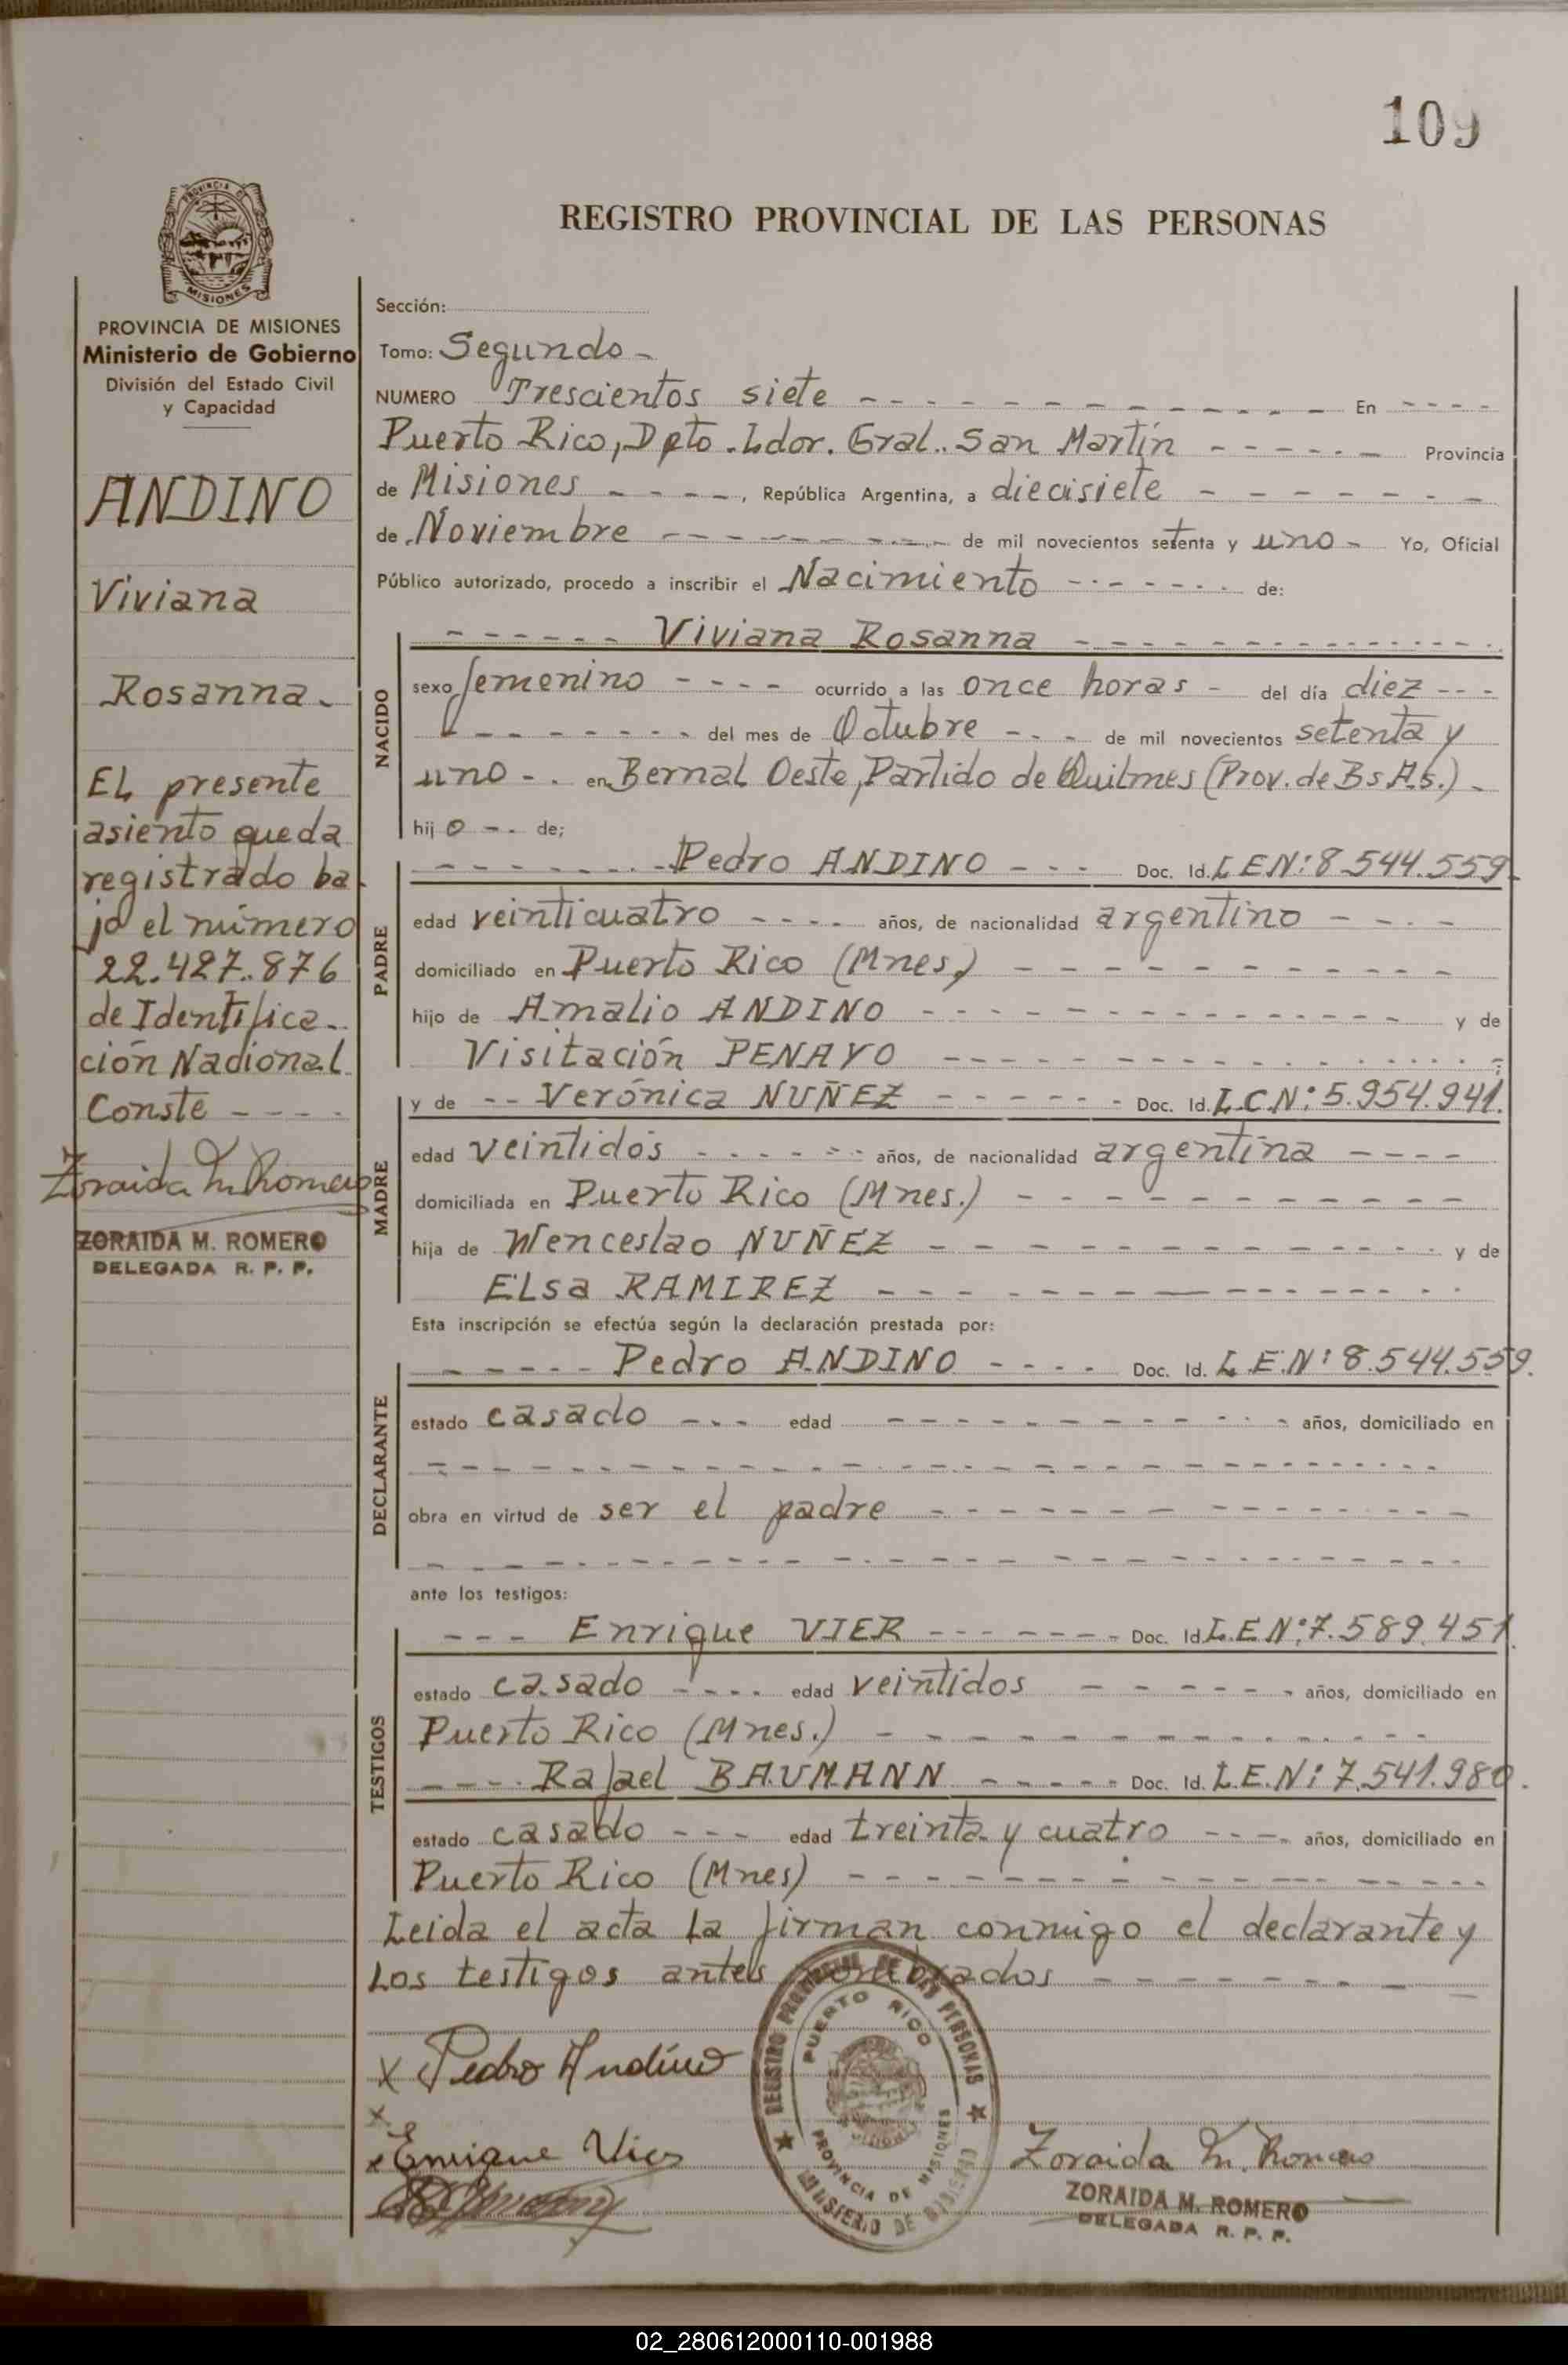 109
REGISTRO PROVINCIAL DE LAS PERSONAS
PROVINCIA DE MISIONES
Ministerio de Gobierno
División del Estado Civil
y Capacidad
ANDINO
Viviana
Rosanna.
EL presente
asiento queda
registrado ba
jo el número
22.427.876
de Identifica-
ción Nacional
Conste - - - -
Zoraida M. Romero
ZORAIDA M. ROMERO
DELEGADA R. P. P.
Sección:
Tomo: Segundo -
NUMERO Trescientos siete - - - En - - - -
Puerto Rico, Dpto. Ldor. Gral. San Martín - - - Provincia
de Misiones - - - -, República Argentina, a diecisiete - - -
de Noviembre - - - de mil novecientos setenta y uno - Yo, Oficial
Público autorizado, procedo a inscribir el Nacimiento - - - de:
NACIDO
- - - Viviana Rosanna - - -
sexo femenino - - - - ocurrido a las once horas - del día diez - - -
- - - del mes de Octubre - - - de mil novecientos setenta y
uno - . en Bernal Oeste, Partido de Quilmes (Prov. de Bs As.) -
hij o - - de;
PADRE
- - - Pedro ANDINO - - - Doc. Id. L E N: 8.544.559.
edad veinticuatro - - - - años, de nacionalidad argentino - - -
domiciliado en Puerto Rico (Mnes.) - - -
hijo de Amalio ANDINO - - - y de
Visitación PENAYO - - -
MADRE
y de - - Verónica NUÑEZ - - - Doc. Id. L.C.N: 5.954.941.
edad veintidós - - - años, de nacionalidad argentina - - - -
domiciliada en Puerto Rico (Mnes.) - - -
hija de Wenceslao NUÑEZ - - - y de
ELsa RAMIREZ - - -
Esta inscripción se efectúa según la declaración prestada por:
DECLARANTE
- - - Pedro ANDINO - - - - Doc. Id. L.E.N: 8.544.559.
estado casado - - - edad - - - años, domiciliado en
- - -
obra en virtud de ser el padre - - -
- - -
ante los testigos:
TESTIGOS
- - - Enrique VIER - - - Doc. Id. L.E.N: 7.589.451.
estado casado - - - - edad veintidos - - - años, domiciliado en
Puerto Rico (Mnes.) - - -
- - - - Rafael BAUMANN - - - Doc. Id. L.E.N: 7.541.980.
estado casado - - - edad treinta y cuatro - - - años, domiciliado en
Puerto Rico (Mnes) - - -
Leida el acta La firman conmigo el declarante y
Los testigos antes nombrados - - -
x Pedro Andino
x
x Enrique Vier
REGISTRO PROVINCIAL DE LAS PERSONAS
PUERTO RICO
PROVINCIA DE MISIONES
MINISTERIO DE GOBIERNO
Zoraida M. Romero
ZORAIDA M. ROMERO
DELEGADA R. P. P.
02_280612000110-001988